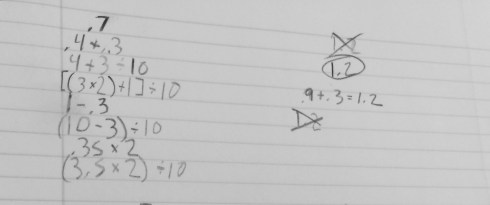 .7
.4+.3
4+3÷10
[(3×2)+1]÷10
1-.3
(10-3)÷10
.35×2
(3.5×2)÷10
1.2
.9+.3=1.2